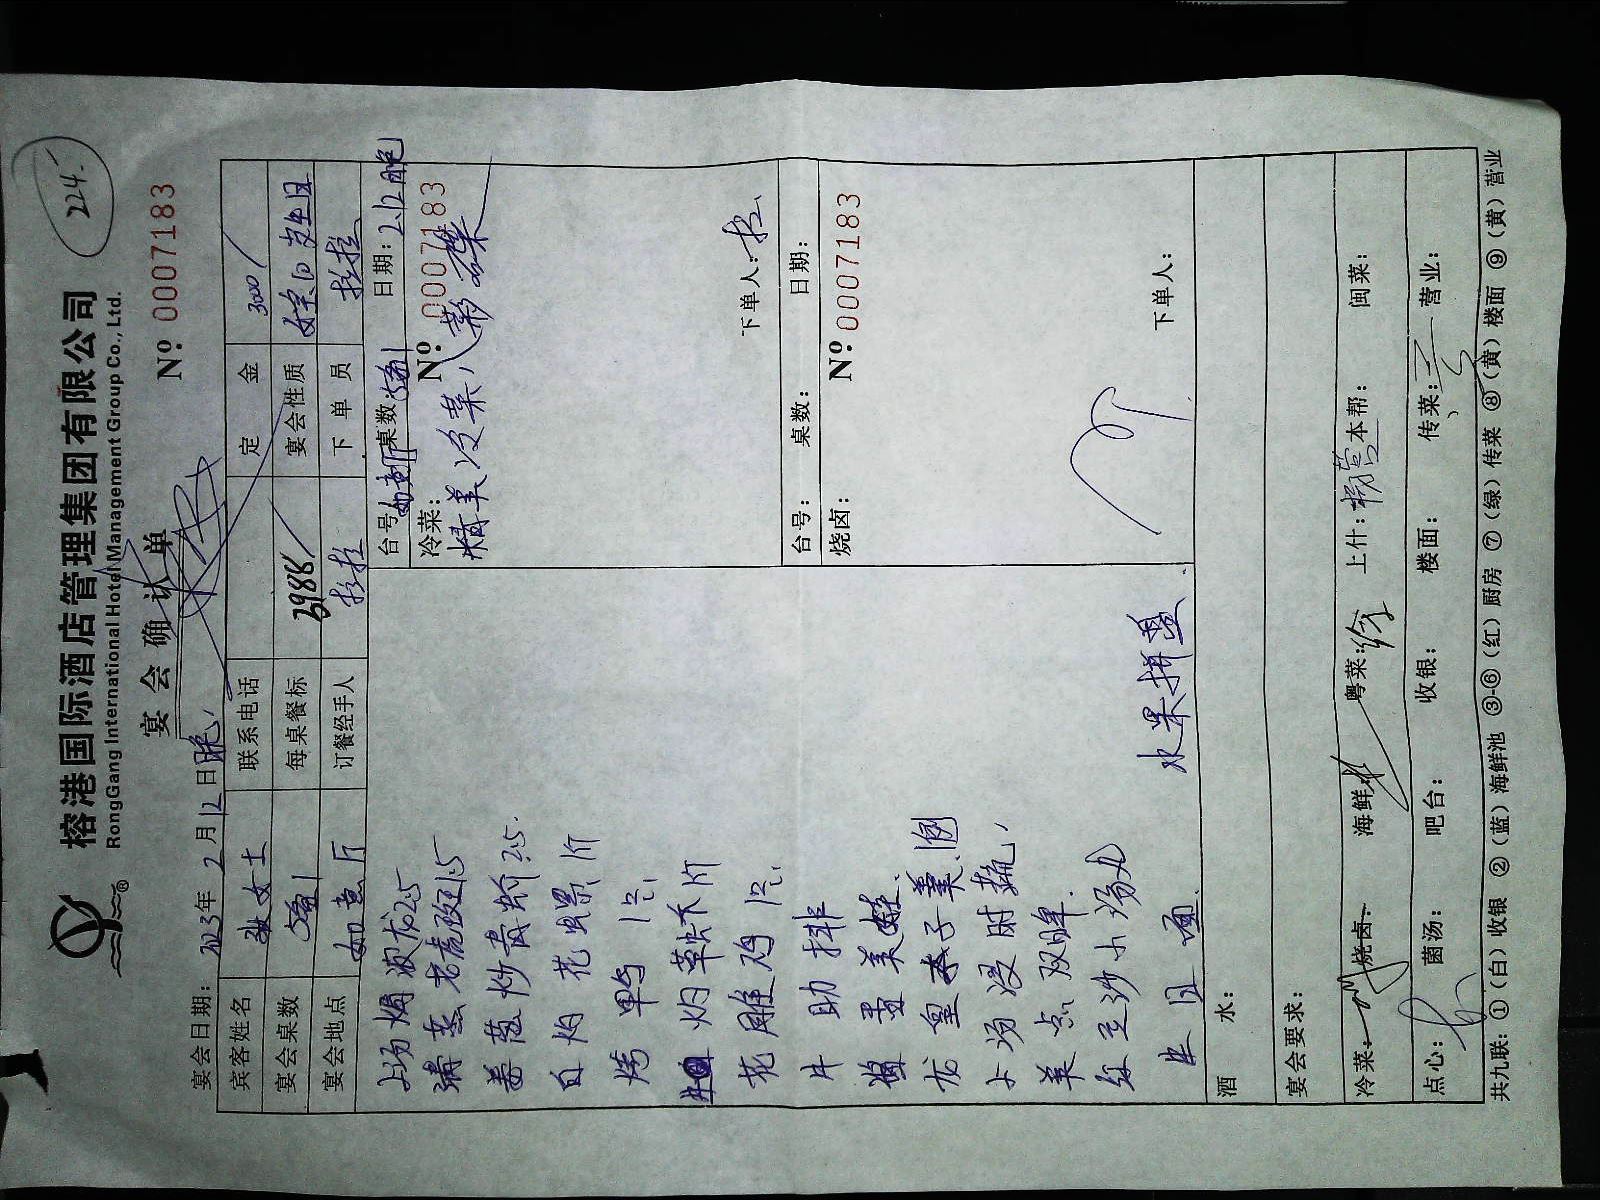 224.
榕港国际酒店管理集团有限公司
RongGang International Hotel Management Group Co., Ltd.
宴会确认单
Nº: 0007183
宴会日期: 年 2 月 12 日 晚
宾客姓名 张女士 联系电话 定金 3000/
宴会桌数 每桌餐标 3988/ 宴会性质
宴会地点 如意厅 订餐经手人 拉拉 下单员 拉拉
上汤焗澳龙 2.5
清蒸老虎斑 1.5
姜葱炒青蟹 2.5.
白灼花螺
烤鸭 1只
花雕鸡 1只
牛肋排
龙皇 子羹
上汤浸时蔬
美点双辉
红豆沙小汤丸
生日面
水果拼盘
台号: 桌数: 日期: 2.12晚
冷菜: Nº: 0007183
精美冷菜八彩碟
下单人: 拉
台号: 桌数: 日期:
烧卤: Nº: 0007183
下单人:
酒水:
宴会要求:
冷菜: 烧卤: 海鲜: 粤菜: 上什: 本帮: 闽菜:
点心: 菌汤: 吧台: 收银: 楼面: 传菜: 营业:
共九联: ①(白)收银 ②(蓝)海鲜池 ③-⑥(红)厨房 ⑦(绿)传菜 ⑧(黄)楼面 ⑨(黄)营业